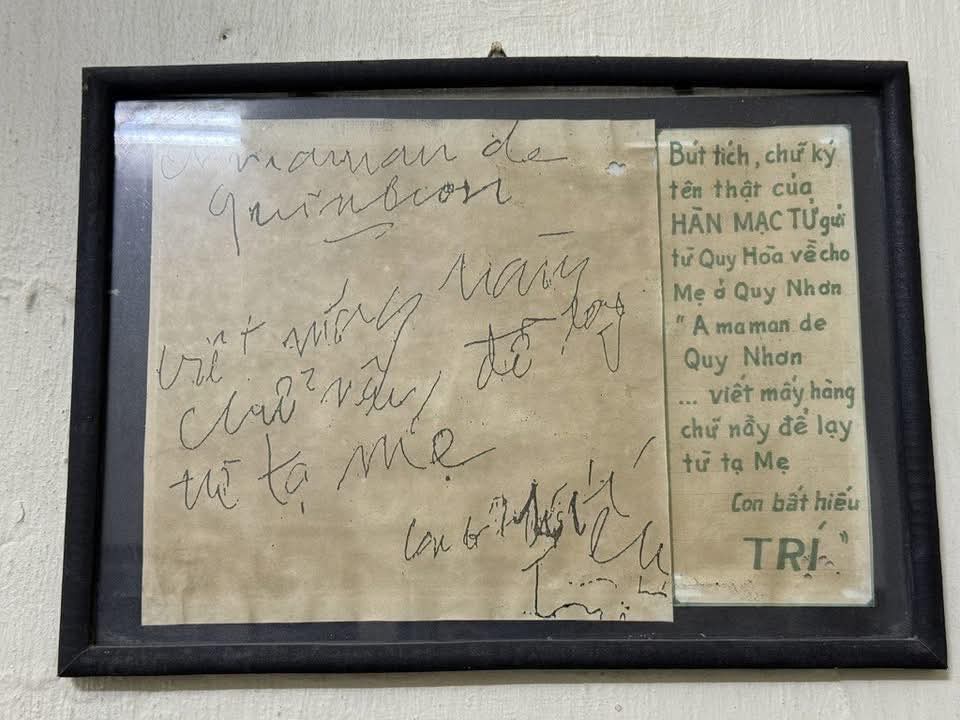 A maman de
Quinhon
viết mấy hàng
chữ nầy để lạy
từ tạ Mẹ
Con bất hiếu
Trí
Bút tích, chữ ký
tên thật của
HÀN MẠC TỬ gửi
từ Quy Hòa về cho
Mẹ ở Quy Nhơn
"A maman de
Quy Nhơn
... viết mấy hàng
chữ nầy để lạy
từ tạ Mẹ
Con bất hiếu
TRÍ"